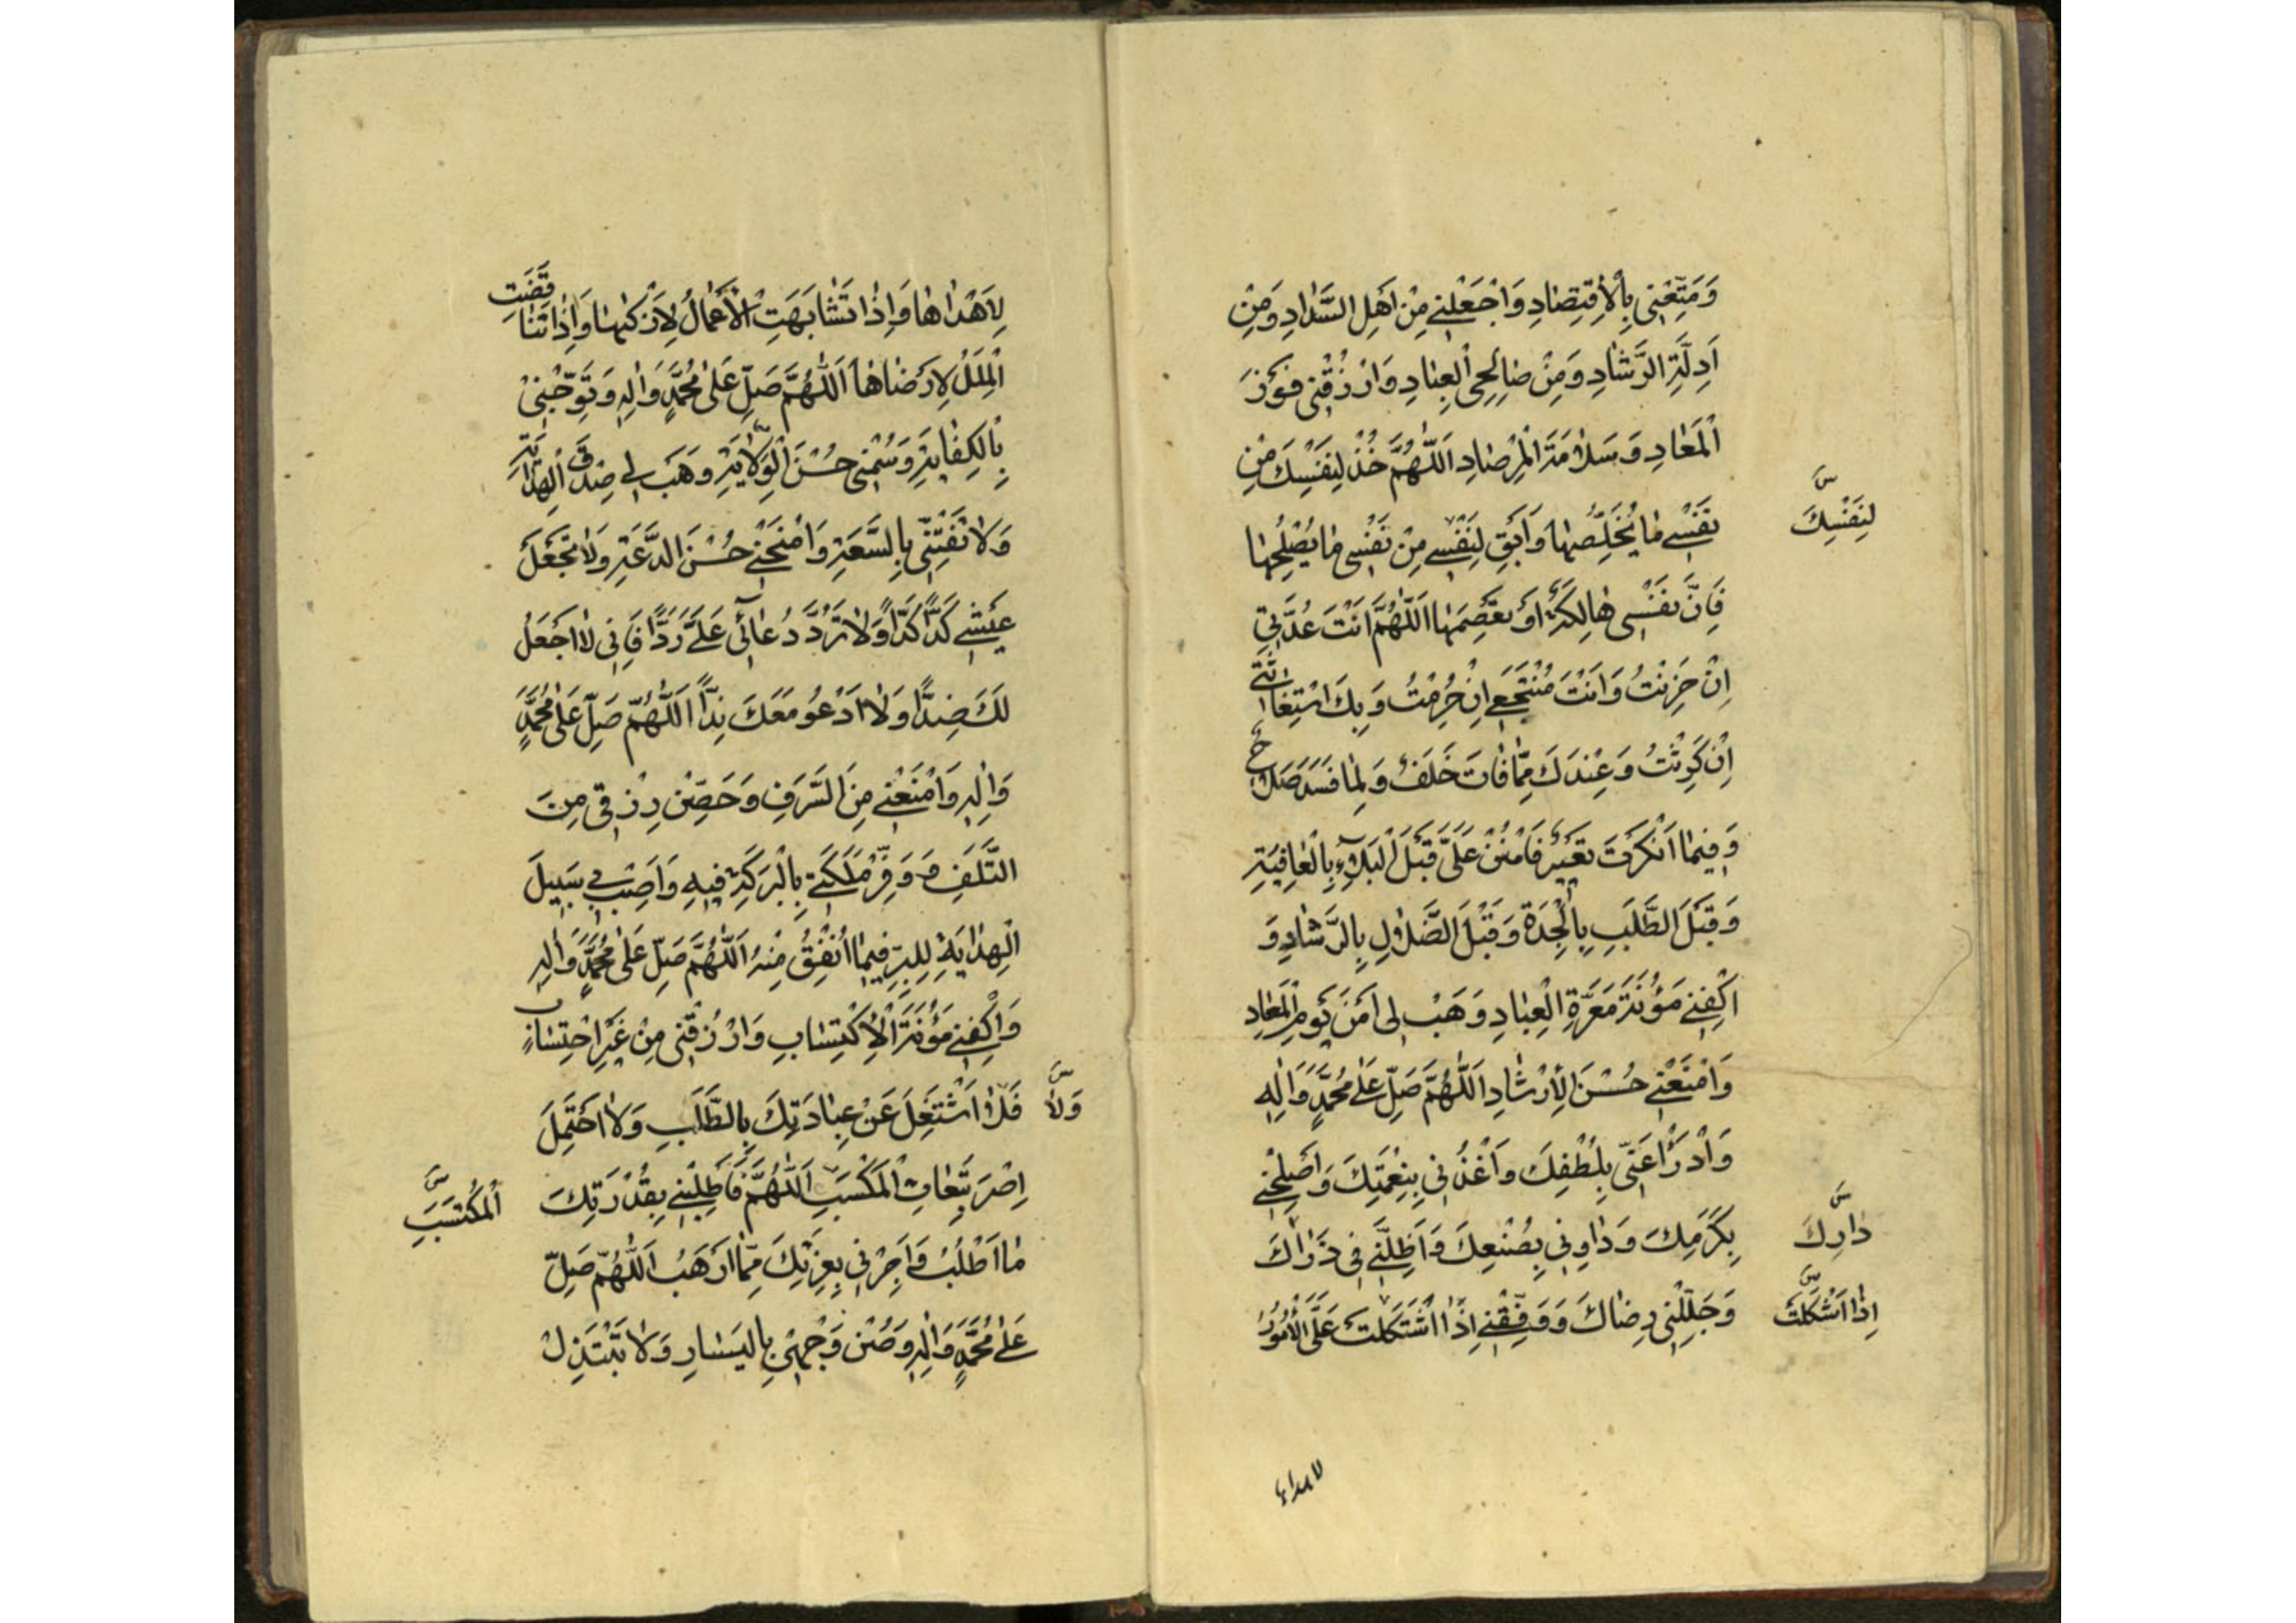 وَمَتِّعْنِي بِالْاِقْتِصَادِ وَاجْعَلْنِي مِنْ اَهْلِ السَّدَادِ وَمِنْ
اَدِلَّةِ الرَّشَادِ وَمِنْ صَالِحِي الْعِبَادِ وَارْزُقْنِي فَوْزَ
الْمَعَادِ وَسَلَامَةَ الْمِرْصَادِ اَللّٰهُمَّ خُذْ لِنَفْسِكَ مِنْ
لِنَفْسِكَ س
نَفْسِي مَا يُخَلِّصُهَا وَاَبْقِ لِنَفْسِي مِنْ نَفْسِي مَا يُصْلِحُهَا
فَاِنَّ نَفْسِي هَالِكَةٌ اَوْ تَعْصِمَهَا اَللّٰهُمَّ اَنْتَ عُدَّتِي
اِنْ حَزِنْتُ وَاَنْتَ مُنْتَجَعِي اِنْ حُرِمْتُ وَبِكَ اسْتِغَاثَتِي
اِنْ كَرِثْتُ وَعِنْدَكَ مِمَّا فَاتَ خَلَفٌ وَلِمَا فَسَدَ صَلَاحٌ
وَفِيمَا اَنْكَرْتَ تَغْيِيرٌ فَامْنُنْ عَلَيَّ قَبْلَ الْبَلَاءِ بِالْعَافِيَةِ
وَقَبْلَ الطَّلَبِ بِالْجِدَةِ وَقَبْلَ الضَّلَالِ بِالرَّشَادِ وَ
اكْفِنِي مَؤُنَةَ مَعَرَّةِ الْعِبَادِ وَهَبْ لِي اَمْنَ يَوْمِ الْمَعَادِ
وَامْنَحْنِي حُسْنَ الْاِرْشَادِ اَللّٰهُمَّ صَلِّ عَلٰى مُحَمَّدٍ وَاٰلِهِ
وَادْرَأْ عَنِّي بِلُطْفِكَ وَاغْذُنِي بِنِعْمَتِكَ وَاَصْلِحْنِي
بِكَرَمِكَ وَدَاوِنِي بِصُنْعِكَ وَاَظِلَّنِي فِي ذَرَاكَ
دَارِكَ س
وَجَلِّلْنِي رِضَاكَ وَوَفِّقْنِي اِذَا اشْتَكَلَتْ عَلَيَّ الْاُمُورُ
اِذَا اَشْكَلَتْ س
لاهداها
لِاَهْدَاهَا وَاِذَا تَشَابَهَتِ الْاَعْمَالُ لِاَزْكٰيهَا وَاِذَا تَنَاقَضَتِ
الْمِلَلُ لِاَرْضَاهَا اَللّٰهُمَّ صَلِّ عَلٰى مُحَمَّدٍ وَاٰلِهِ وَتَوِّجْنِي
بِالْكِفَايَةِ وَسُمْنِي حُسْنَ الْوِلَايَةِ وَهَبْ لِي صِدْقَ الْهِدَايَةِ
وَلَا تَفْتِنِّي بِالسَّعَةِ وَامْنَحْنِي حُسْنَ الدَّعَةِ وَلَا تَجْعَلْ
عَيْشِي كَدًّا كَدًّا وَلَا تَرُدَّ دُعَائِي عَلَيَّ رَدًّا فَاِنِّي لَا اَجْعَلُ
لَكَ ضِدًّا وَلَا اَدْعُو مَعَكَ نِدًّا اَللّٰهُمَّ صَلِّ عَلٰى مُحَمَّدٍ
وَاٰلِهِ وَامْنَعْنِي مِنَ السَّرَفِ وَحَصِّنْ رِزْقِي مِنَ
التَّلَفِ وَوَفِّرْ مَلَكَتِي بِالْبَرَكَةِ فِيهِ وَاَصِبْ بِي سَبِيلَ
الْهِدَايَةِ لِلْبِرِّ فِيمَا اُنْفِقُ مِنْهُ اَللّٰهُمَّ صَلِّ عَلٰى مُحَمَّدٍ وَاٰلِهِ
وَاكْفِنِي مَؤُنَةَ الْاِكْتِسَابِ وَارْزُقْنِي مِنْ غَيْرِ احْتِسَابٍ
وَلَا س
فَلَا اَشْتَغِلَ عَنْ عِبَادَتِكَ بِالطَّلَبِ وَلَا اَحْتَمِلَ
اِصْرَ تَبِعَاتِ الْمَكْسَبِ اَللّٰهُمَّ فَاَطْلِبْنِي بِقُدْرَتِكَ
الْمُكْتَسَبِ س
مَا اَطْلُبُ وَاَجِرْنِي بِعِزَّتِكَ مِمَّا اَرْهَبُ اَللّٰهُمَّ صَلِّ
عَلٰى مُحَمَّدٍ وَاٰلِهِ وَصُنْ وَجْهِي بِالْيَسَارِ وَلَا تَبْتَذِلْ